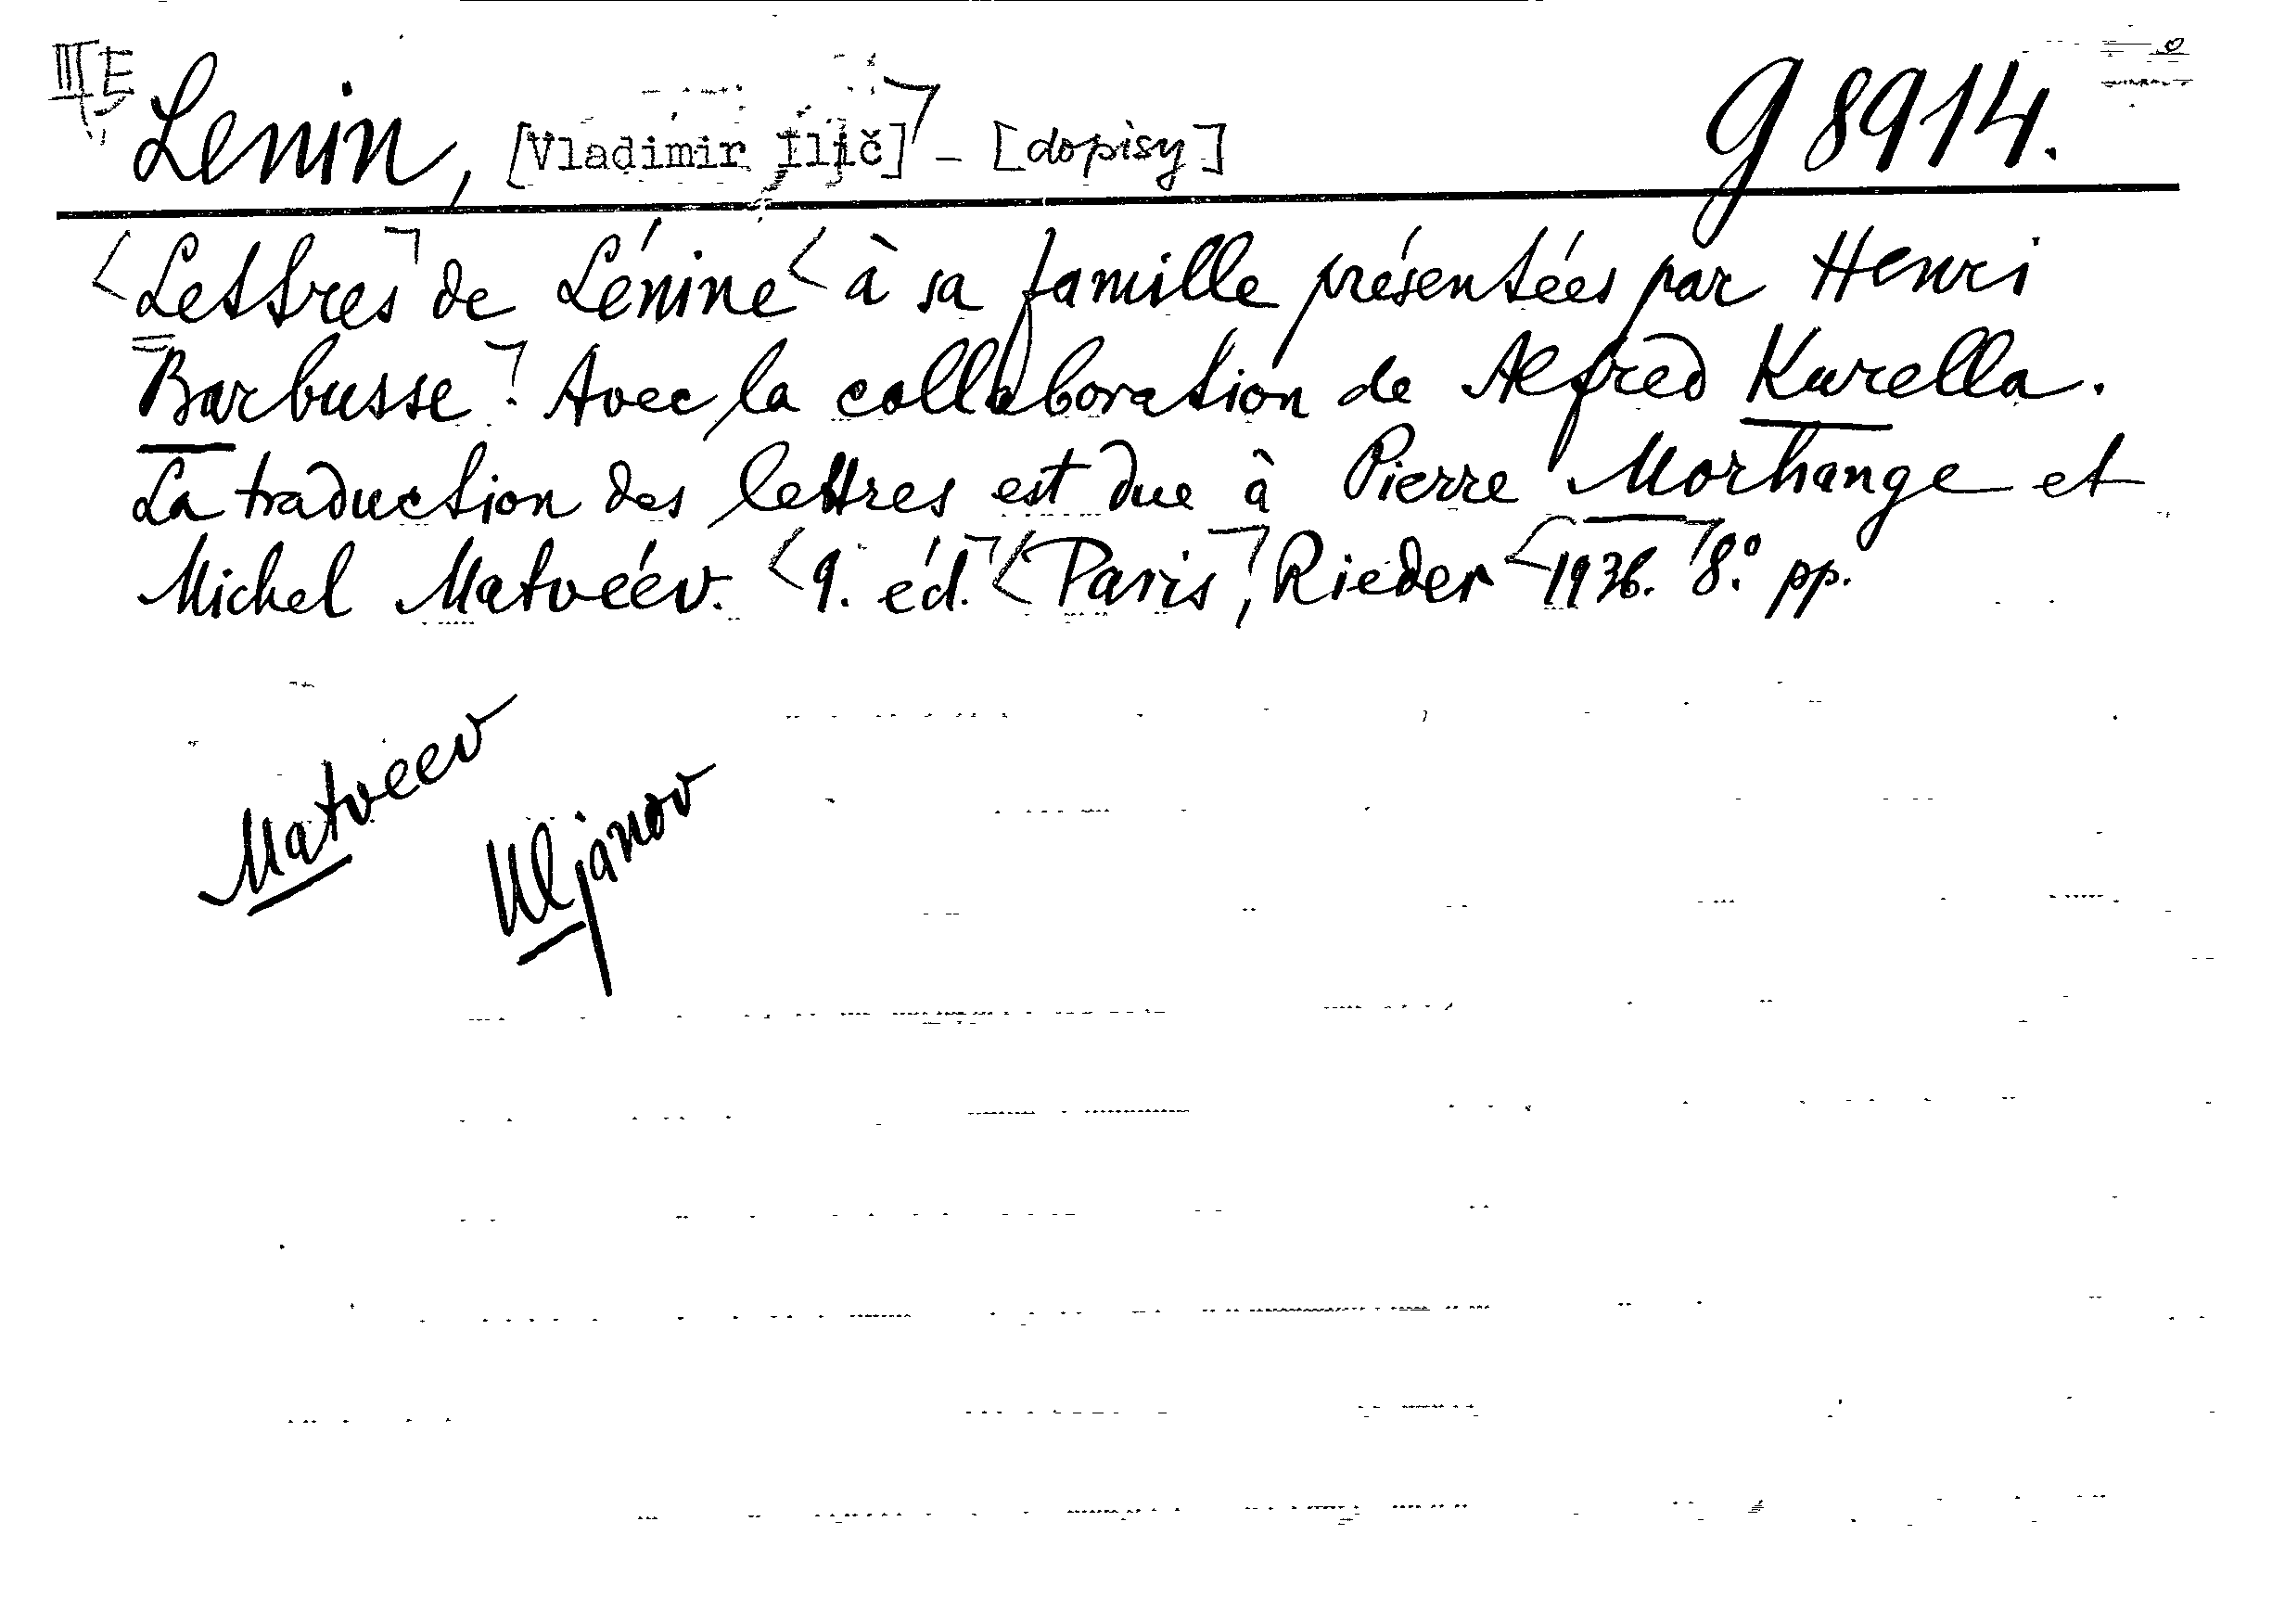 Lenin, [Vladimir Iljič] - [dopisy] g 8914.
Lettres de Lénine à sa famille présentées par Henri
Barbusse. Avec la collaboration de Alfred Kurella.
La traduction des lettres est due à Pierre Morhange et
Michel Matvéév. 9. éd. Paris, Rieder 1936. 8.° pp.
Matveev
Uljanov